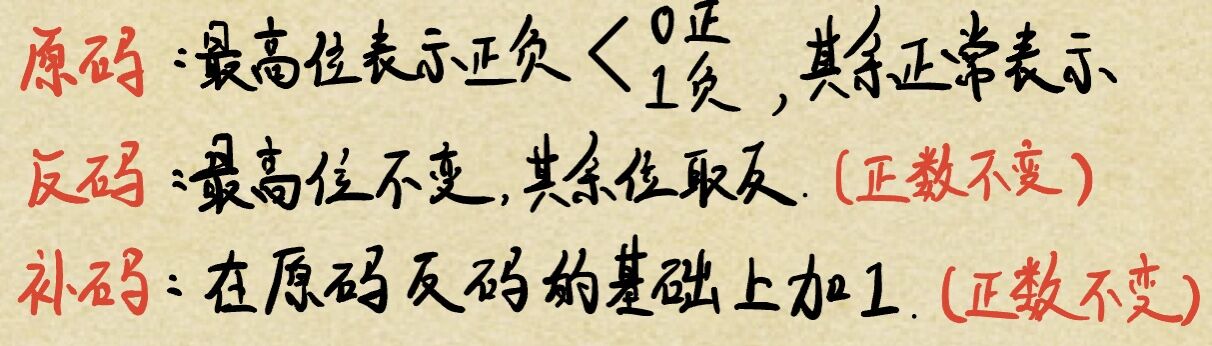 原码：最高位表示正负 < 0正 1负 ，其余正常表示
反码：最高位不变，其余位取反.（正数不变）
补码：在原码反码的基础上加1.（正数不变）